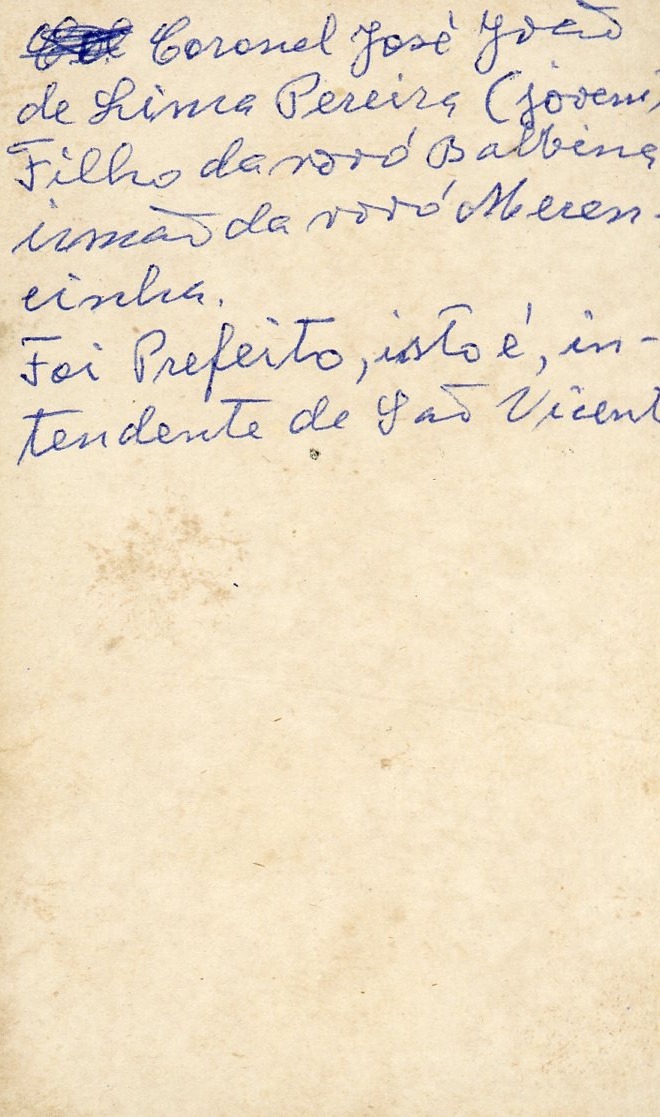 Coronel José Ivão
de Lima Pereira (jovem)
Filho da vovó Balbina
irmão da vovó Meren-
cinha.
Foi Prefeito, isto é, in-
tendente de São Vicent